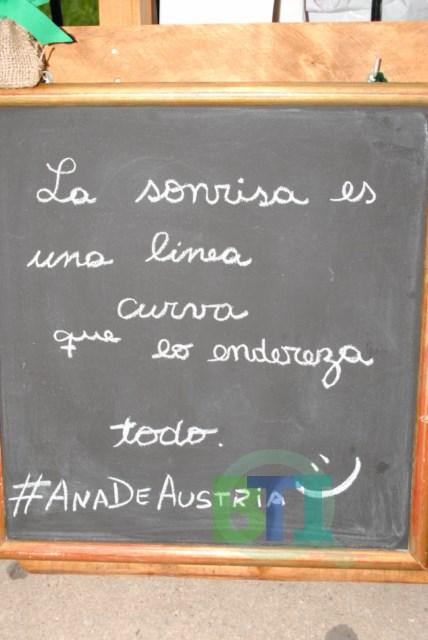 La sonrisa es
una linea
curva
que lo endereza
todo.
#ANADEAUSTRIA
GTI